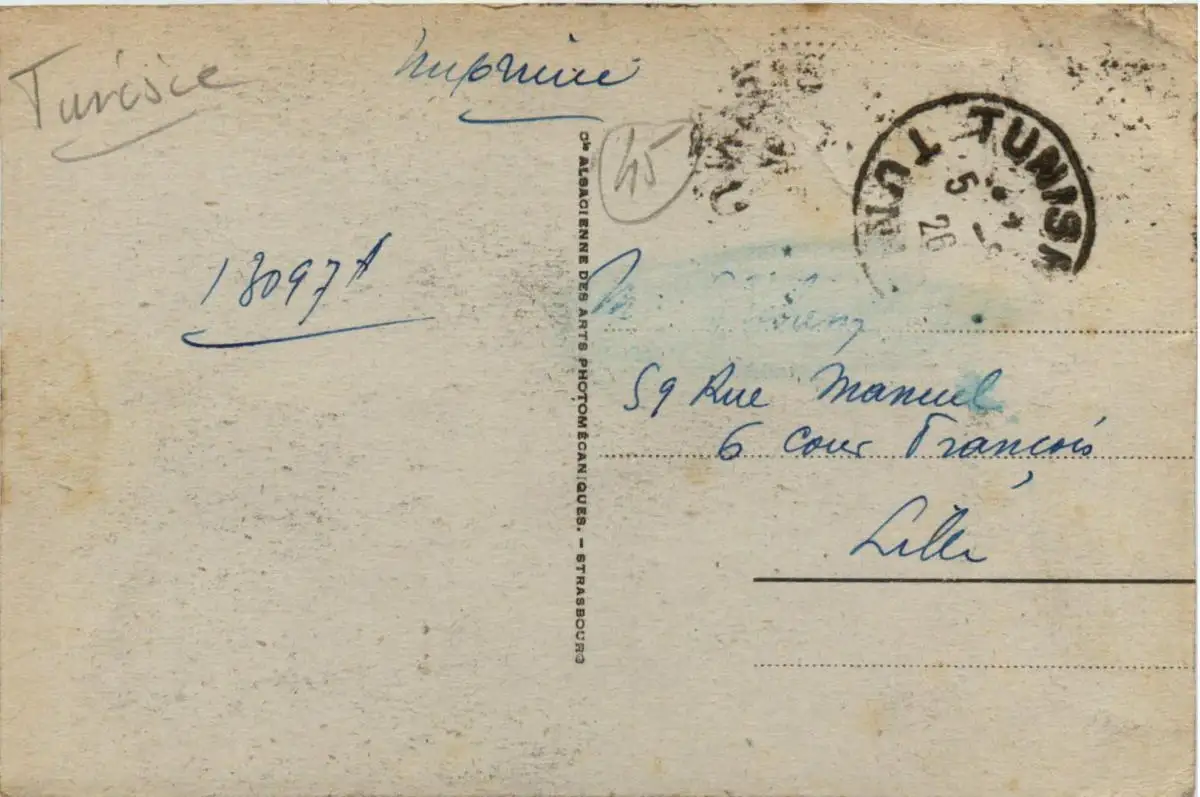 Tunisie
Imprimé
45
TUNIS
5
26
13097A
Cie ALSACIENNE DES ARTS PHOTOMÉCANIQUES. – STRASBOURG
59 Rue Manuel
6 Cour François
Lille